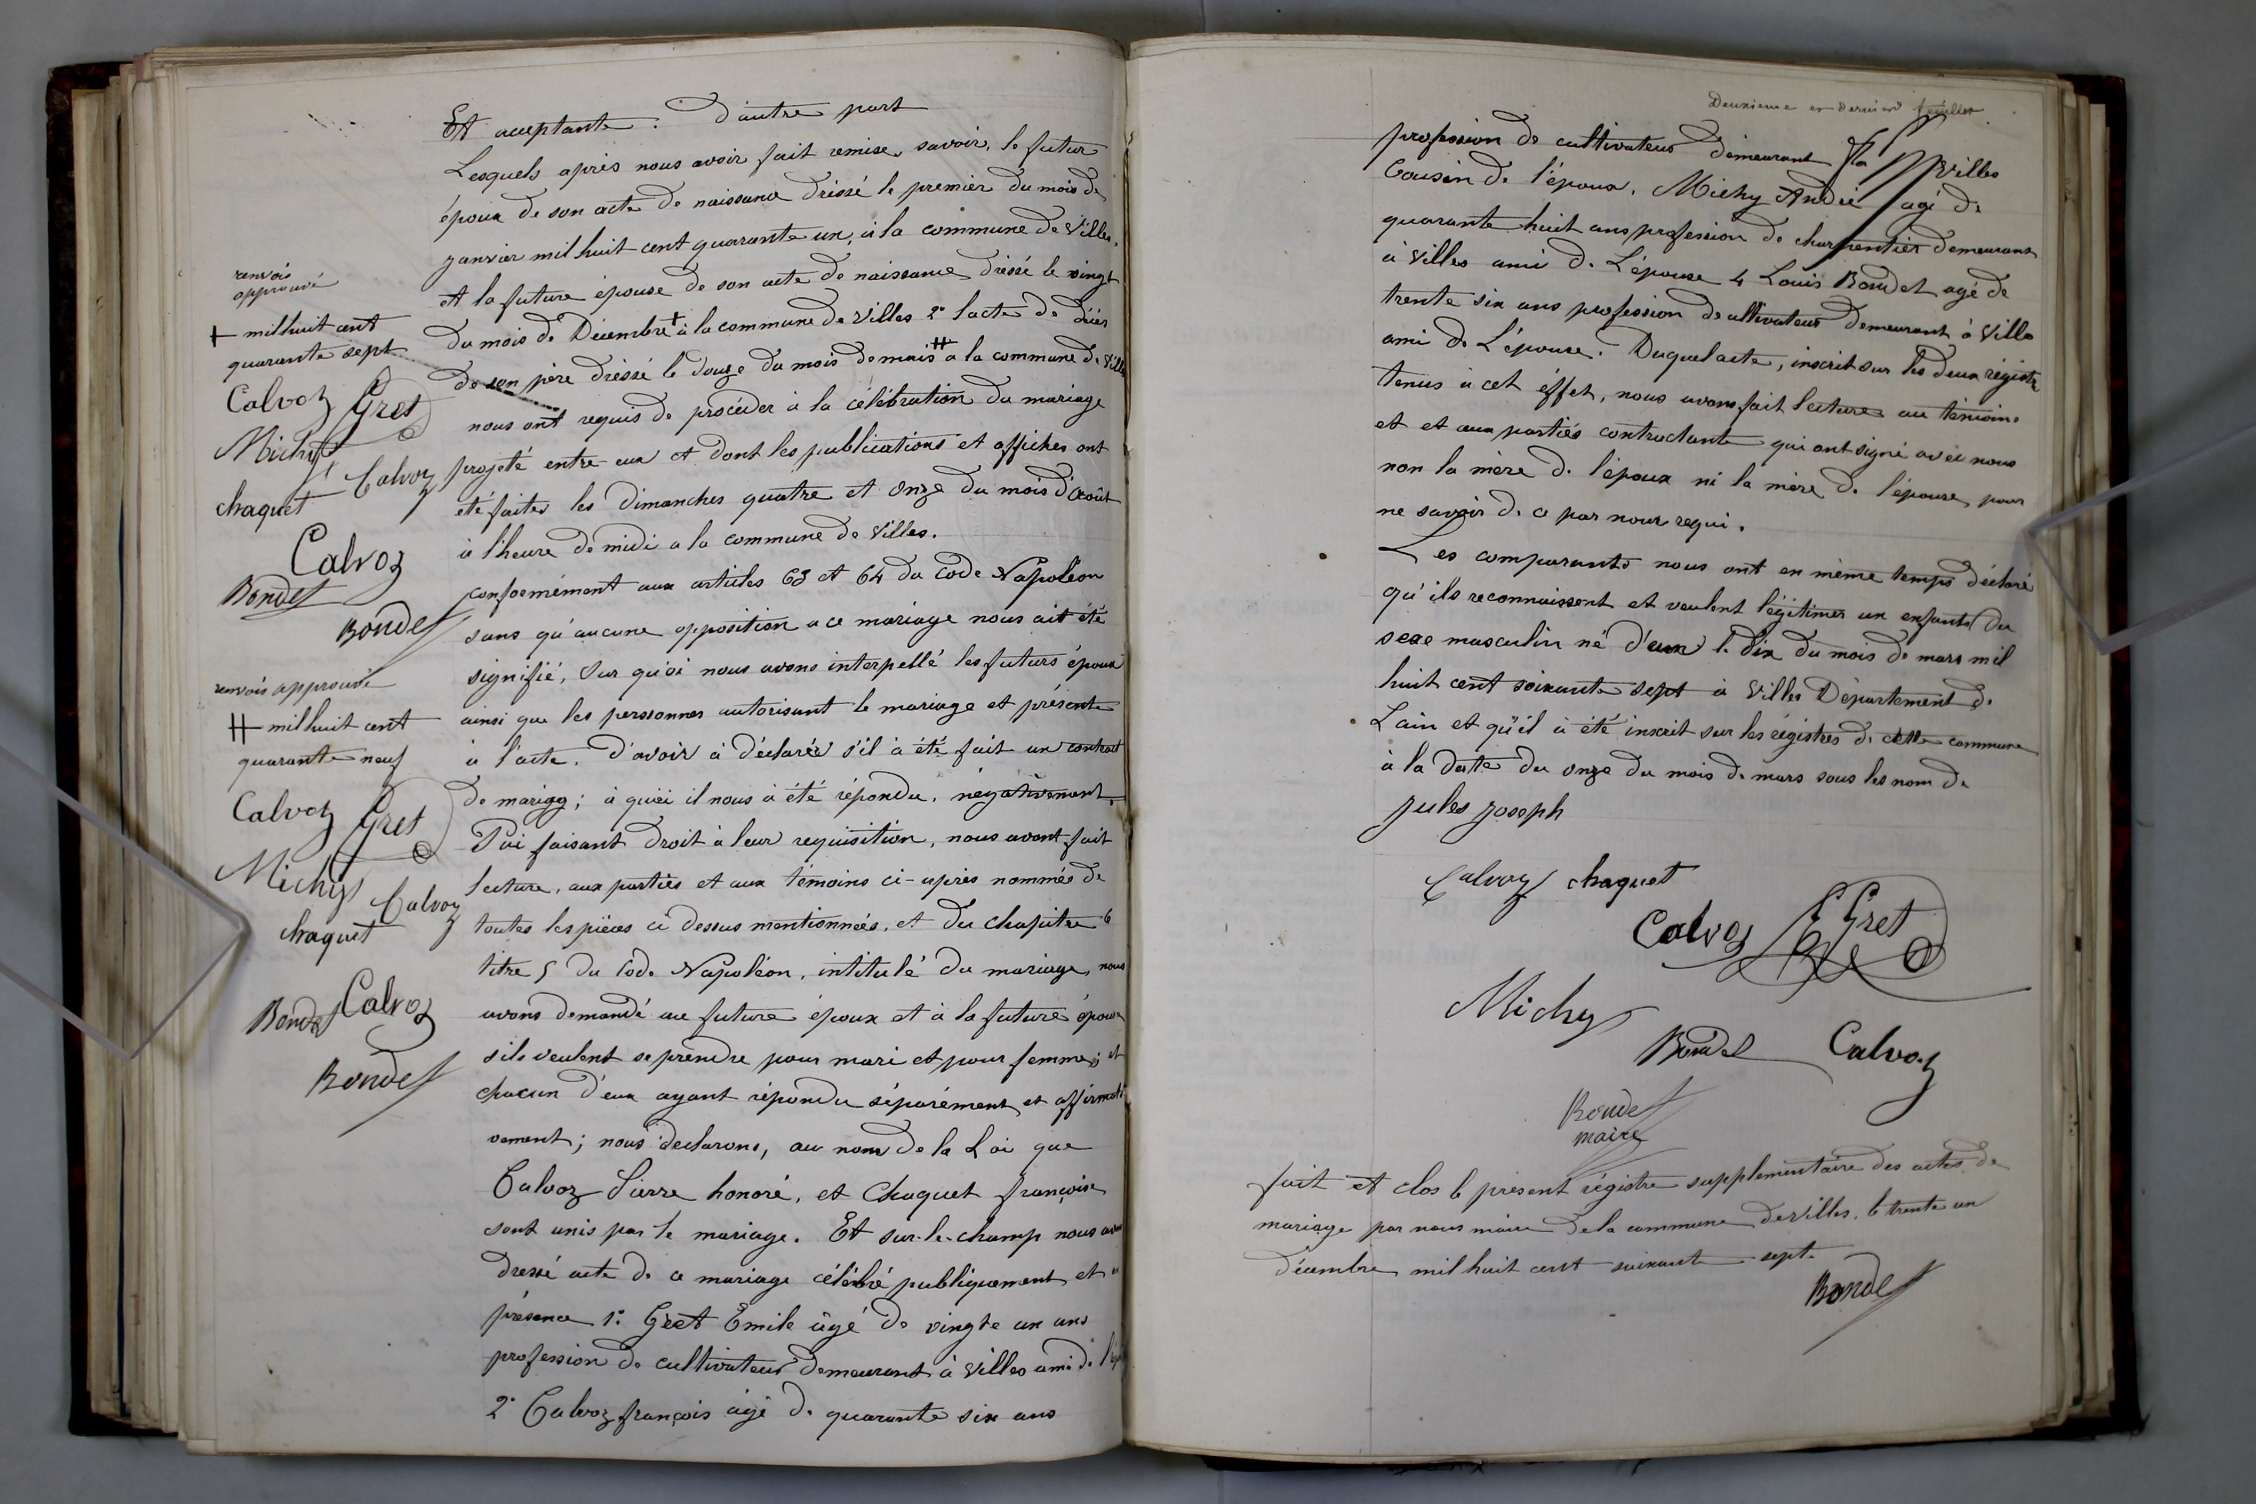 Et acceptante. D'autre part
Lesquels après nous avoir fait remise, savoir, le futur
époux de son acte de naissance dréssé le premier du mois de
janvier mil huit cent quarante un, à la commune de Villes,
et la future épouse de son acte de naissance dréssé le vingt
du mois de Décembre + à la commune de Villes 2° l'acte de décès
de son père dréssé le douze du mois de mais ++ a la commune de Villes
nous ont requis de procéder à la célébration du mariage
projeté entre eux et dont les publications et affiches ont
été faites les dimanches quatre et onze du mois d'Août
à l'heure de midi a la commune de Villes.
conformément aux articles 63 et 64 du Code Napoléon
sans qu'aucune opposition a ce mariage nous ait été
signifié, Sur qu'oi nous avons interpellé les futurs époux
ainsi que les personnes autorisant le mariage et présente
à l'acte. d'avoir à déclaréé s'il à été fait un contrat
de mariag; à quoi il nous à été répondu, négativement.
Pui faisant droit à leur requisition, nous avont fait
lecture, aux parties et aux témoins ci-après nommés de
toutes les pièces ci dessus mentionnées, et du chapitre 6
titre 5 du Code Napoléon, intitulé du mariage, nous
avons demandé au future époux et à la future épouse
s'ils veulent se prendre pour mari et pour femme; et
chacun d'eux ayant répondu séparément et affirmati
vement; nous declarons, au nom de la Loi que
Calvoz Pierre honoré, et Chaquet françoise
sont unis par le mariage. Et sur-le-champ nous avons
dressé acte de ce mariage célébré publiquement et
présence 1° Gret Emile âgé de vingte un ans
profession de cultivateur demeurant à Villes ami de
2° Calvoz françois âgé de quarante six ans
renvois
approuvé
+ mil huit cent
quarante sept
Calvoz Gret
Michy
Calvoz
chaquet
Calvoz
Bondet
Bondet
renvois approuvé
++ mil huit cent
quarante neuf
Calvoz Gret
Michy
Calvoz
chaquet
Bondet Calvoz
Bondet
Deuxieme et dernier feuillet
profession de cultivateur demeurant à Villes
Cousin de l'époux. Michy André agé de
quarante huit ans profession de charpentier demeurant
à Villes ami de L'épouse 4 Louis Bondet agé de
trente six ans profession de cultivateur demeurant à Villes
ami de L'épouse. Duquel acte, inscrit sur les deux régistre
tenus à cet éffet, nous avons fait lecture au témoins
et et aux parties contractante qui ont signé avec nous
non la mère de l'époux ni la mère de l'épouse pour
ne savoir de ce par nour requi.
Les comparants nous ont en même temps déclaré
qu'ils reconnaissent et veulent légitimer un enfant du
sexe masculin né d'eux le dix du mois de mars mil
huit cent soixante sept à Villes Département de
Lain et qu'il à été inscrit sur les régistres de cette commune
à la date du onze du mois de mars sous les nom de
Jules Joseph
Calvoz chaquet
Calvoz Gret
Michy
Bondet Calvoz
Bondet
maire
fait et clos le présent régistre supplementaire des actes de
mariage par nous maire de la commune de Villes. le trente un
décembre mil huit cent soixante sept
Bondet